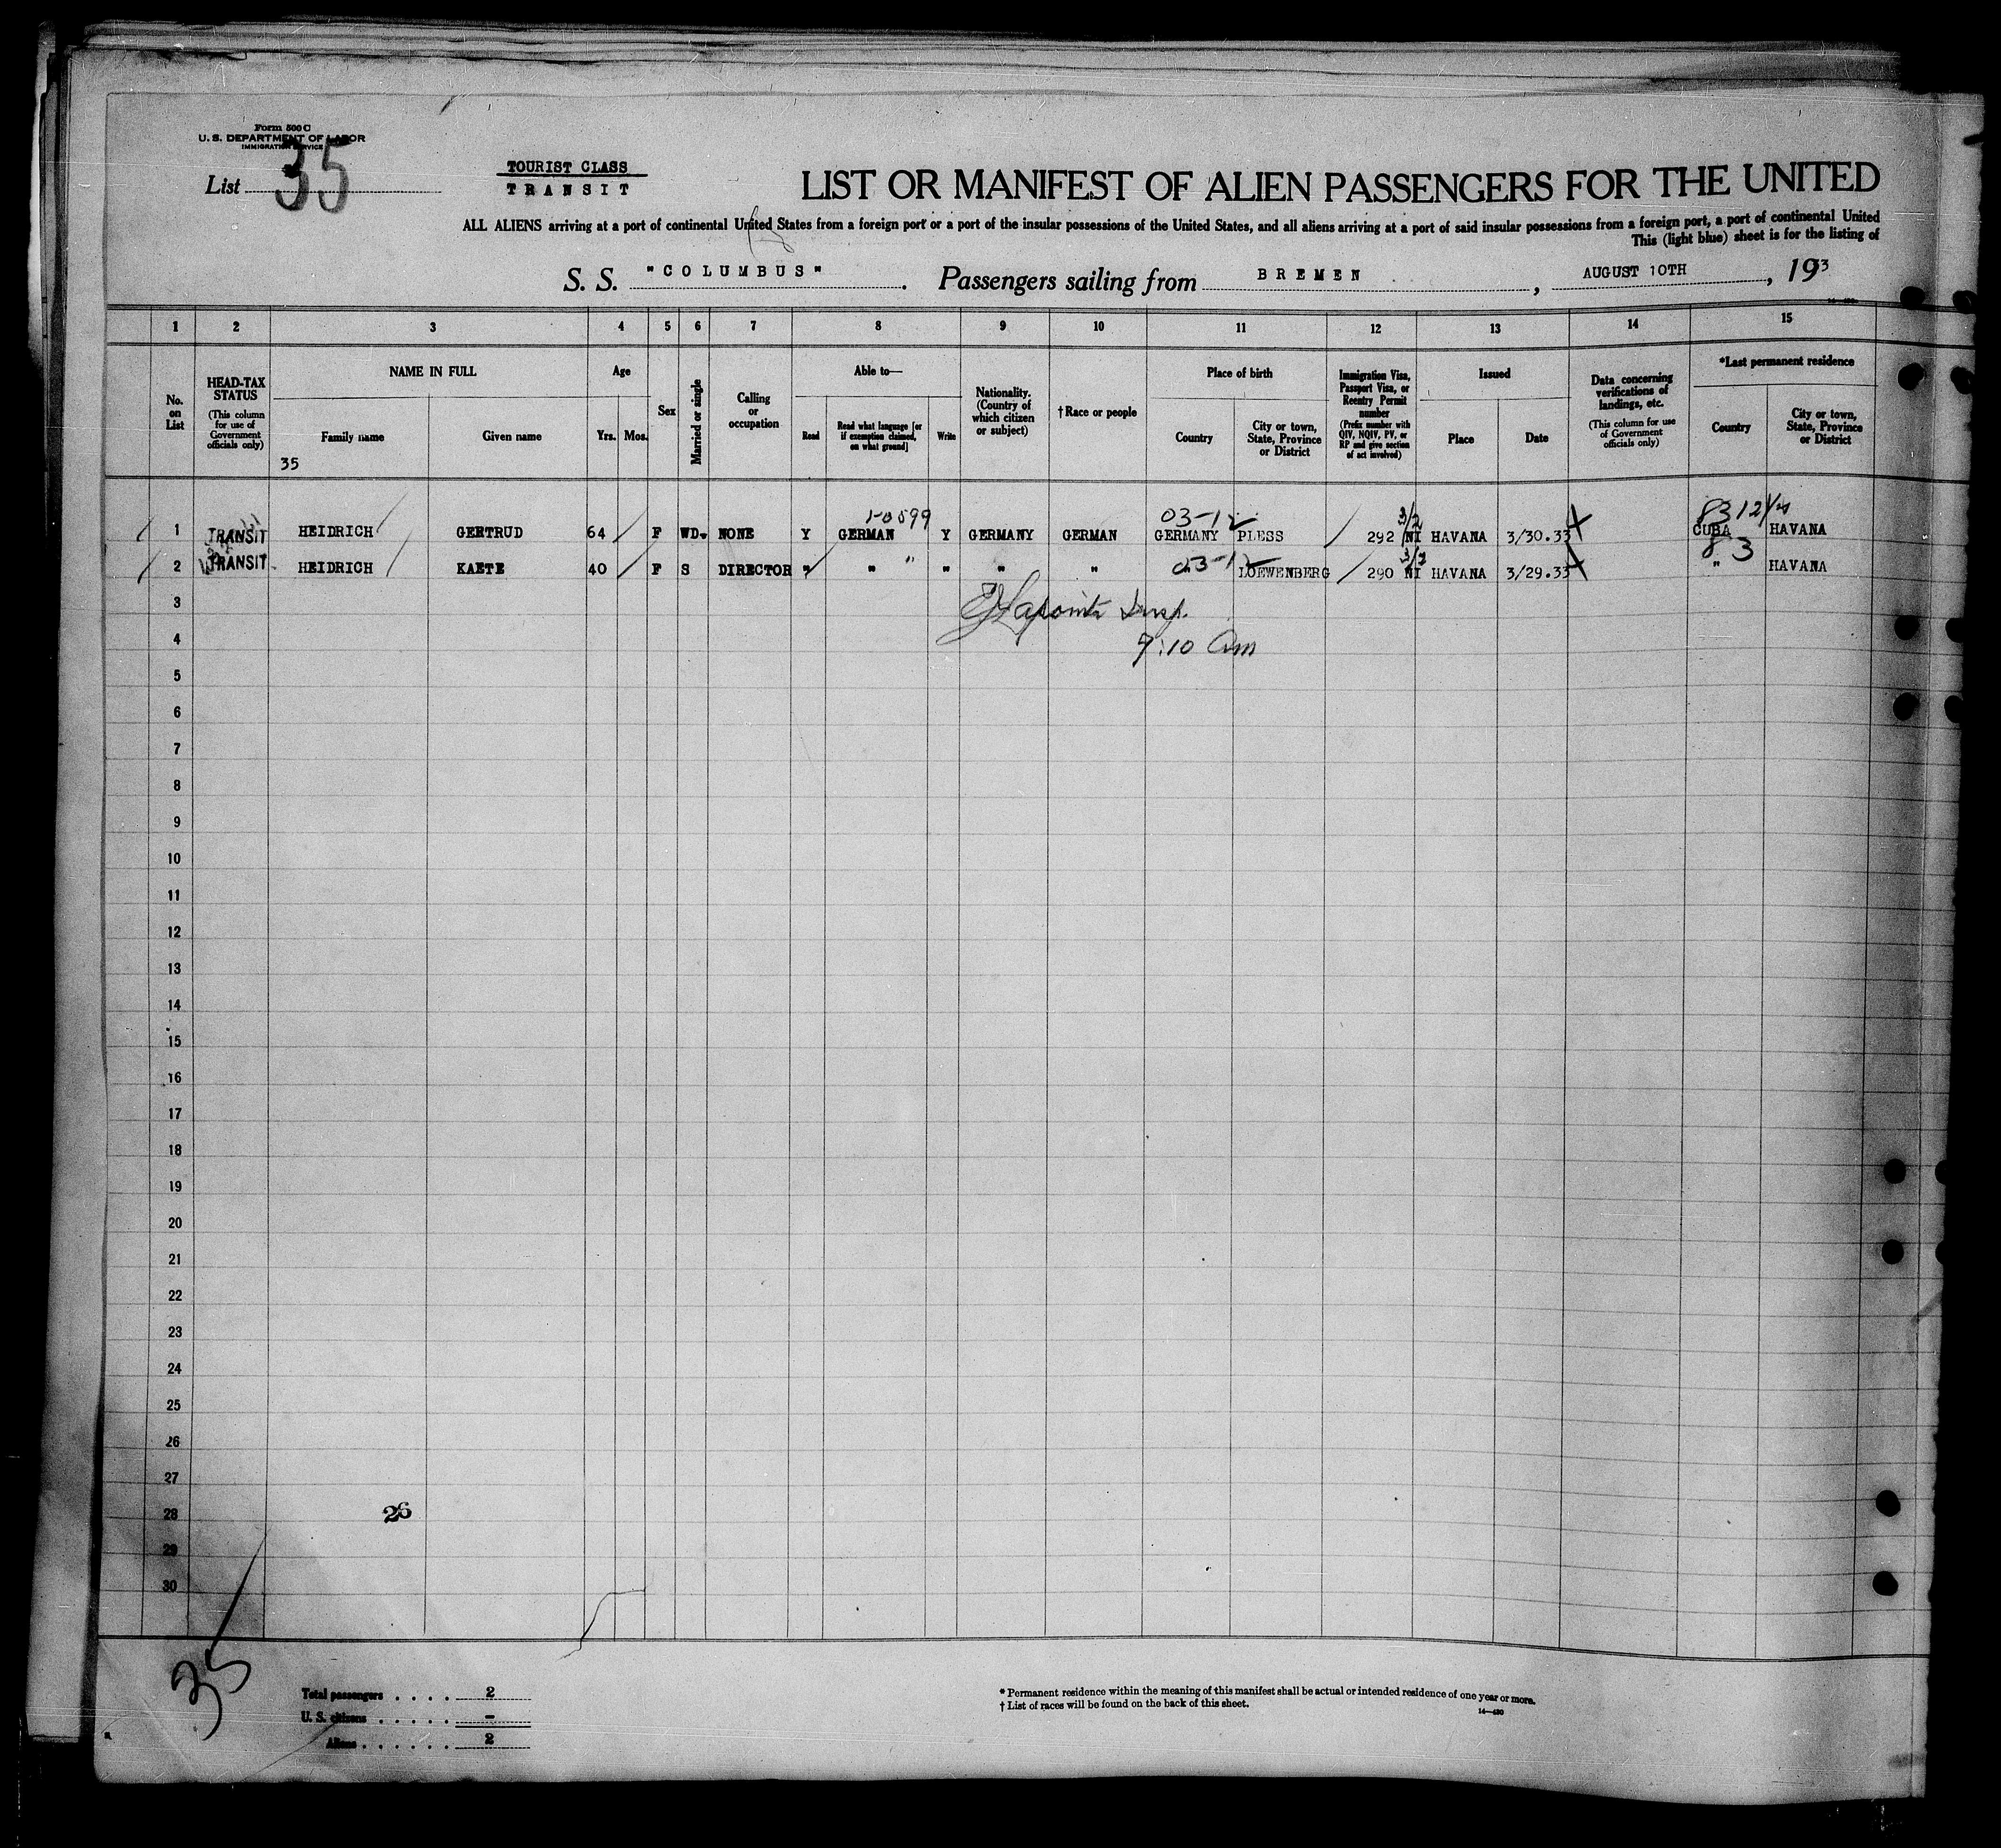 Form 500 C
U. S. DEPARTMENT OF LABOR
IMMIGRATION SERVICE
List 35
TOURIST CLASS
TRANSIT
LIST OR MANIFEST OF ALIEN PASSENGERS FOR THE UNITED
ALL ALIENS arriving at a port of continental United States from a foreign port or a port of the insular possessions of the United States, and all aliens arriving at a port of said insular possessions from a foreign port, a port of continental United
This (light blue) sheet is for the listing of
S. S. "COLUMBUS". Passengers sailing from BREMEN, AUGUST 10TH, 193
1 2 3 4 5 6 7 8 9 10 11 12 13 14 15
No. on List
HEAD-TAX STATUS (This column for use of Government officials only)
NAME IN FULL
Family name
Given name
35
Age
Yrs. Mos.
Sex
Married or single
Calling or occupation
Able to—
Read
Read what language [or if exemption claimed, on what ground]
Write
Nationality. (Country of which citizen or subject)
†Race or people
Place of birth
Country
City or town, State, Province or District
Immigration Visa, Passport Visa, or Reentry Permit number (Prefix number with QIV, NQIV, PV, or RP and give section of act involved)
Issued
Place
Date
Data concerning verifications of landings, etc. (This column for use of Government officials only)
*Last permanent residence
Country
City or town, State, Province or District
1-0599 03-12 3/2 83 12
1 TRANSIT HEIDRICH GERTRUD 64 F WD. NONE Y GERMAN Y GERMANY GERMAN GERMANY PLESS 292 NI HAVANA 3/30.33 CUBA HAVANA
03-12 3/2 83
2 TRANSIT HEIDRICH KAETE 40 F S DIRECTOR " " " " " LOEWENBERG 290 NI HAVANA 3/29.33 " HAVANA
3 Lapointe Insp.
4 9:10 am
5
6
7
8
9
10
11
12
13
14
15
16
17
18
19
20
21
22
23
24
25
26
27
28 26
29
30
35
Total passengers . . . . 2
U. S. citizens . . . . . –
Aliens . . . . . . 2
* Permanent residence within the meaning of this manifest shall be actual or intended residence of one year or more.
† List of races will be found on the back of this sheet.
14—430